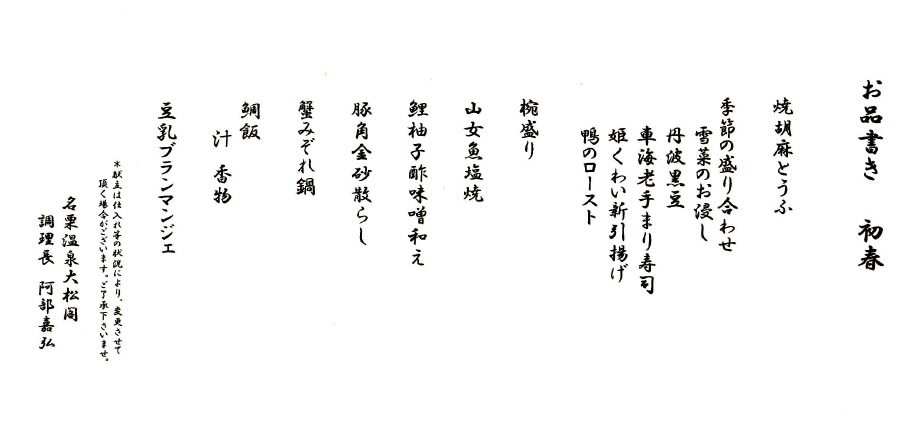 お品書き　初春
焼胡麻とうふ
季節の盛り合わせ
雪菜のお浸し
丹波黒豆
車海老手まり寿司
姫くわい新引揚げ
鴨のロースト
椀盛り
山女魚塩焼
鯉柚子酢味噌和え
豚角金砂散らし
蟹みぞれ鍋
鯛飯
汁　香物
豆乳ブランマンジェ
＊献立は仕入れ等の状況により、変更させて
頂く場合がございます。ご了承下さいませ。
名栗温泉大松閣
調理長　阿部嘉弘